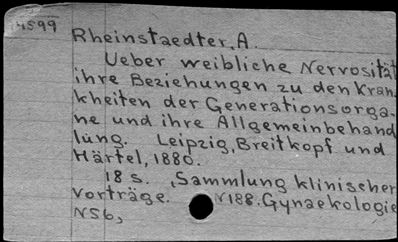 4599
Rheinstaedter, A.
Ueber weibliche Nervosität
ihre Beziehungen zu den Kran-
kheiten der Generationsorga-
ne und ihre Allgemeinbehand
lung. Leipzig, Breitkopf und
Härtel, 1880.
18 s. ,Sammlung klinischer
Vorträge. N188. Gynaekologie
N56,